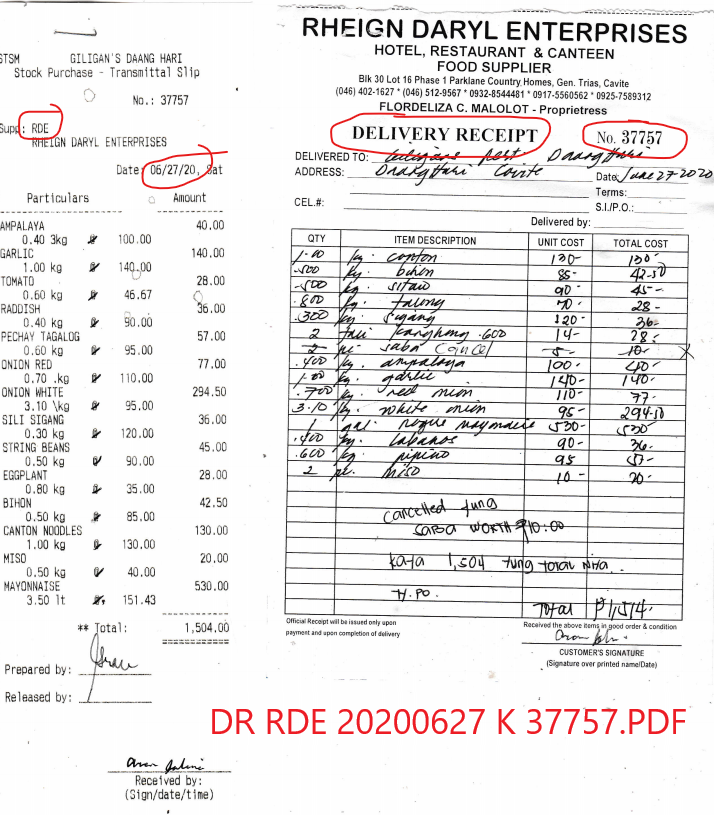 STSM GILIGAN'S DAANG HARI
Stock Purchase - Transmittal Slip
No.: 37757
Supp: RDE
RHEIGN DARYL ENTERPRISES
Date: 06/27/20, Sat
Particulars Amount
AMPALAYA 40.00
0.40 3kg @ 100.00
GARLIC 140.00
1.00 kg @ 140.00
TOMATO 28.00
0.60 kg @ 46.67
RADDISH 36.00
0.40 kg @ 90.00
PECHAY TAGALOG 57.00
0.60 kg @ 95.00
ONION RED 77.00
0.70 .kg @ 110.00
ONION WHITE 294.50
3.10 \kg @ 95.00
SILI SIGANG 36.00
0.30 kg @ 120.00
STRING BEANS 45.00
0.50 kg @ 90.00
EGGPLANT 28.00
0.80 kg @ 35.00
BIHON 42.50
0.50 kg @ 85.00
CANTON NOODLES 130.00
1.00 kg @ 130.00
MISO 20.00
0.50 kg @ 40.00
MAYONNAISE 530.00
3.50 lt @ 151.43
** Total: 1,504.00
Prepared by:
Released by:
Received by:
(Sign/date/time)
RHEIGN DARYL ENTERPRISES
HOTEL, RESTAURANT & CANTEEN
FOOD SUPPLIER
Blk 30 Lot 16 Phase 1 Parklane Country Homes, Gen. Trias, Cavite
(046) 402-1627 * (046) 512-9567 * 0932-8544481 * 0917-5560562 * 0925-7589312
FLORDELIZA C. MALOLOT - Proprietress
DELIVERY RECEIPT No. 37757
DELIVERED TO: Giligans Rest Daanghari
ADDRESS: Daanghari Cavite Date: June 27 2020
Terms:
CEL.#: S.I./P.O.:
Delivered by:
QTY ITEM DESCRIPTION UNIT COST TOTAL COST
1.00 kg. canton 130- 130-
.500 kg. bihon 85- 42.50
.500 kg. sitaw 90- 45-
.800 kg. talong 70- 28-
.300 kg. sigang 120- 36-
2 tali kanghong .600 14- 28-
2 pc. saba Cancel 5- 10- X
.400 kg. ampalaya 100- 40-
1.00 kg. garlic 140- 140-
.700 kg. red onion 110- 77-
3.10 kg. white onion 95- 294.50
1 gal. mayonaise 530- 530
.400 kg. labanos 90- 36-
.600 kg. pipino 95 57-
2 pc. miso 10- 20-
cancelled yung
SABA WORTH ₱10:00
kaya 1,504 yung total nya.
T.PO.
TOTAL ₱1,514.
Official Receipt will be issued only upon
payment and upon completion of delivery
Received the above items in good order & condition
CUSTOMER'S SIGNATURE
(Signature over printed name/Date)
DR RDE 20200627 K 37757.PDF